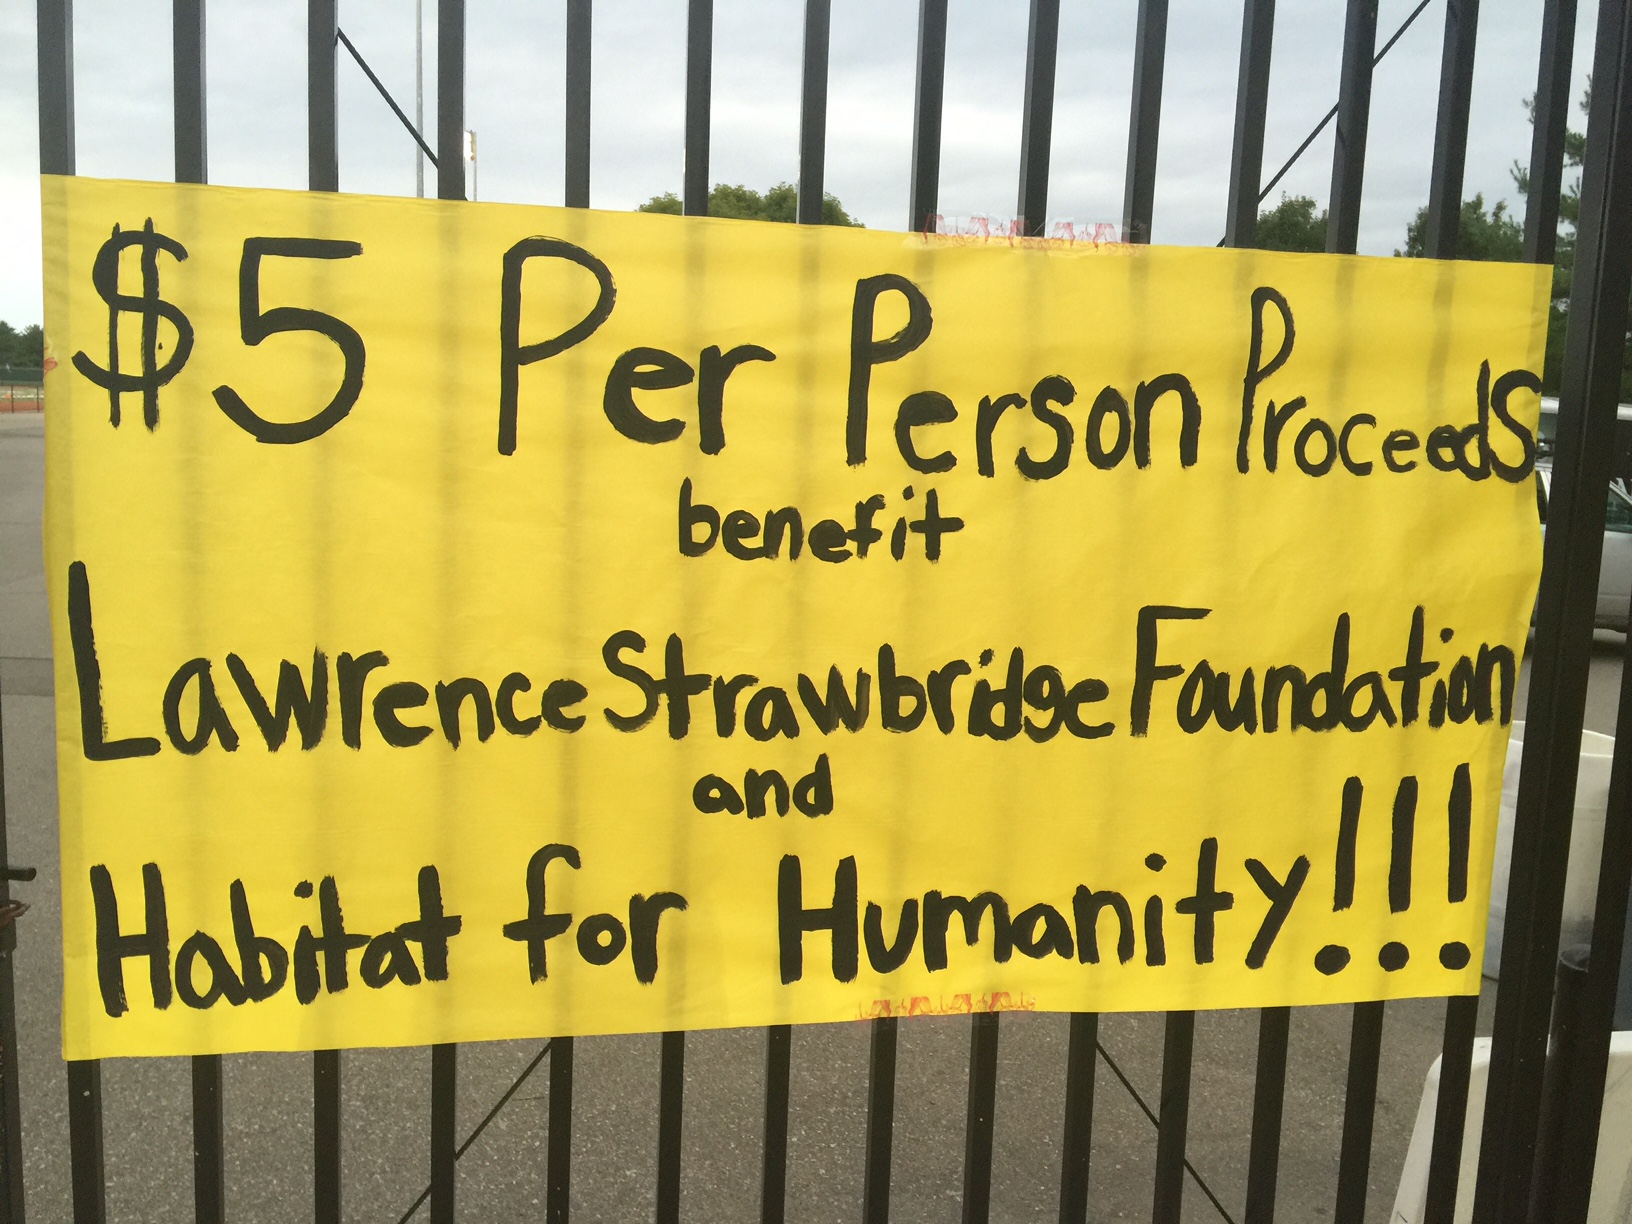 $5 Per Person Proceeds
benefit
Lawrence Strawbridge Foundation
and
Habitat for Humanity!!!